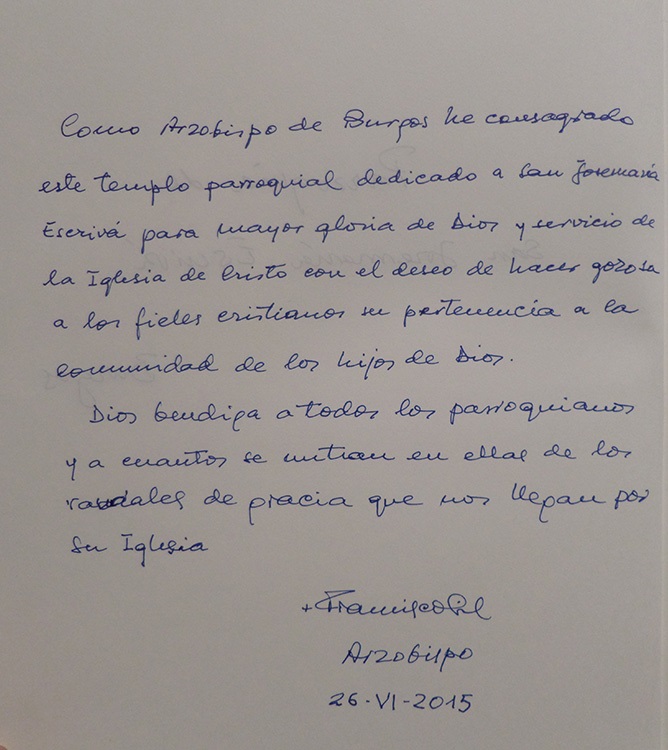 Como Arzobispo de Burgos he consagrado
este templo parroquial dedicado a San Josemaría
Escrivá para mayor gloria de Dios y servicio de
la Iglesia de Cristo con el deseo de hacer gozosa
a los fieles cristianos su pertenencia a la
comunidad de los hijos de Dios.
Dios bendiga a todos los parroquianos
y a cuantos se nutran en ellas de los
raudales de gracia que nos llegan por
su Iglesia
+ Francisco Gil
Arzobispo
26-VI-2015